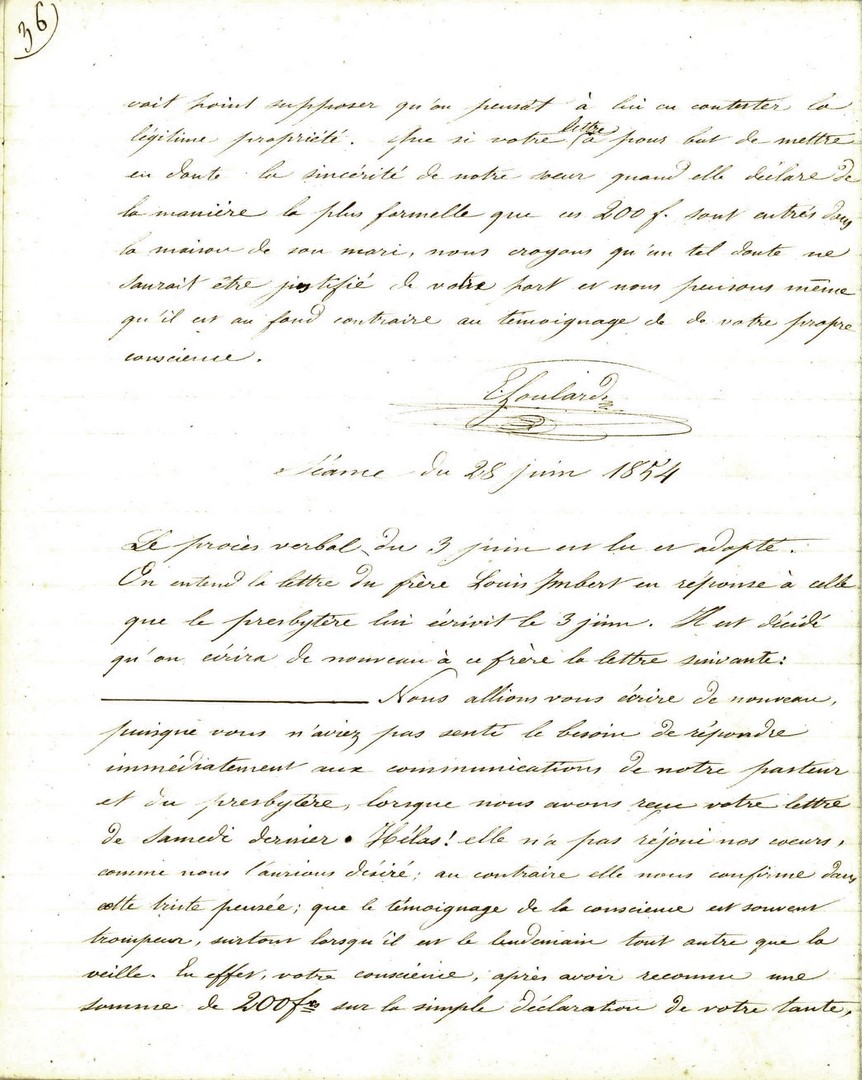 36
vait point supposer qu'on pensât à lui en contester la
légitime propriété. Que si votre lettre a pour but de mettre
en doute la sincérité de notre soeur quand elle déclare de
la manière la plus formelle que ces 200 f. sont entrés dans
la maison de son mari, nous croyons qu'un tel doute ne
saurait être justifié de votre part et nous pensons même
qu'il est au fond contraire au témoignage de de votre propre
conscience.
E. Foulard
Séance du 28 juin 1854
Le procès verbal du 3 juin est lu et adopté.
On entend la lettre du frère Louis Imbert en réponse à celle
que le presbytère lui écrivit le 3 juin. Il est décidé
qu'on écrira de nouveau à ce frère la lettre suivante:
Nous allions vous écrire de nouveau,
puisque vous n'aviez pas senti le besoin de répondre
immédiatement aux communications de notre pasteur
et du presbytère, lorsque nous avons reçu votre lettre
de samedi dernier. Hélas! elle n'a pas réjoui nos coeurs,
comme nous l'aurions désiré; au contraire elle nous confirme dans
cette triste pensée; que le témoignage de la conscience est souvent
trompeur, surtout lorsqu'il est le lendemain tout autre que la
veille. En effet, votre conscience, après avoir reconnu une
somme de 200 frs sur la simple déclaration de votre tante,